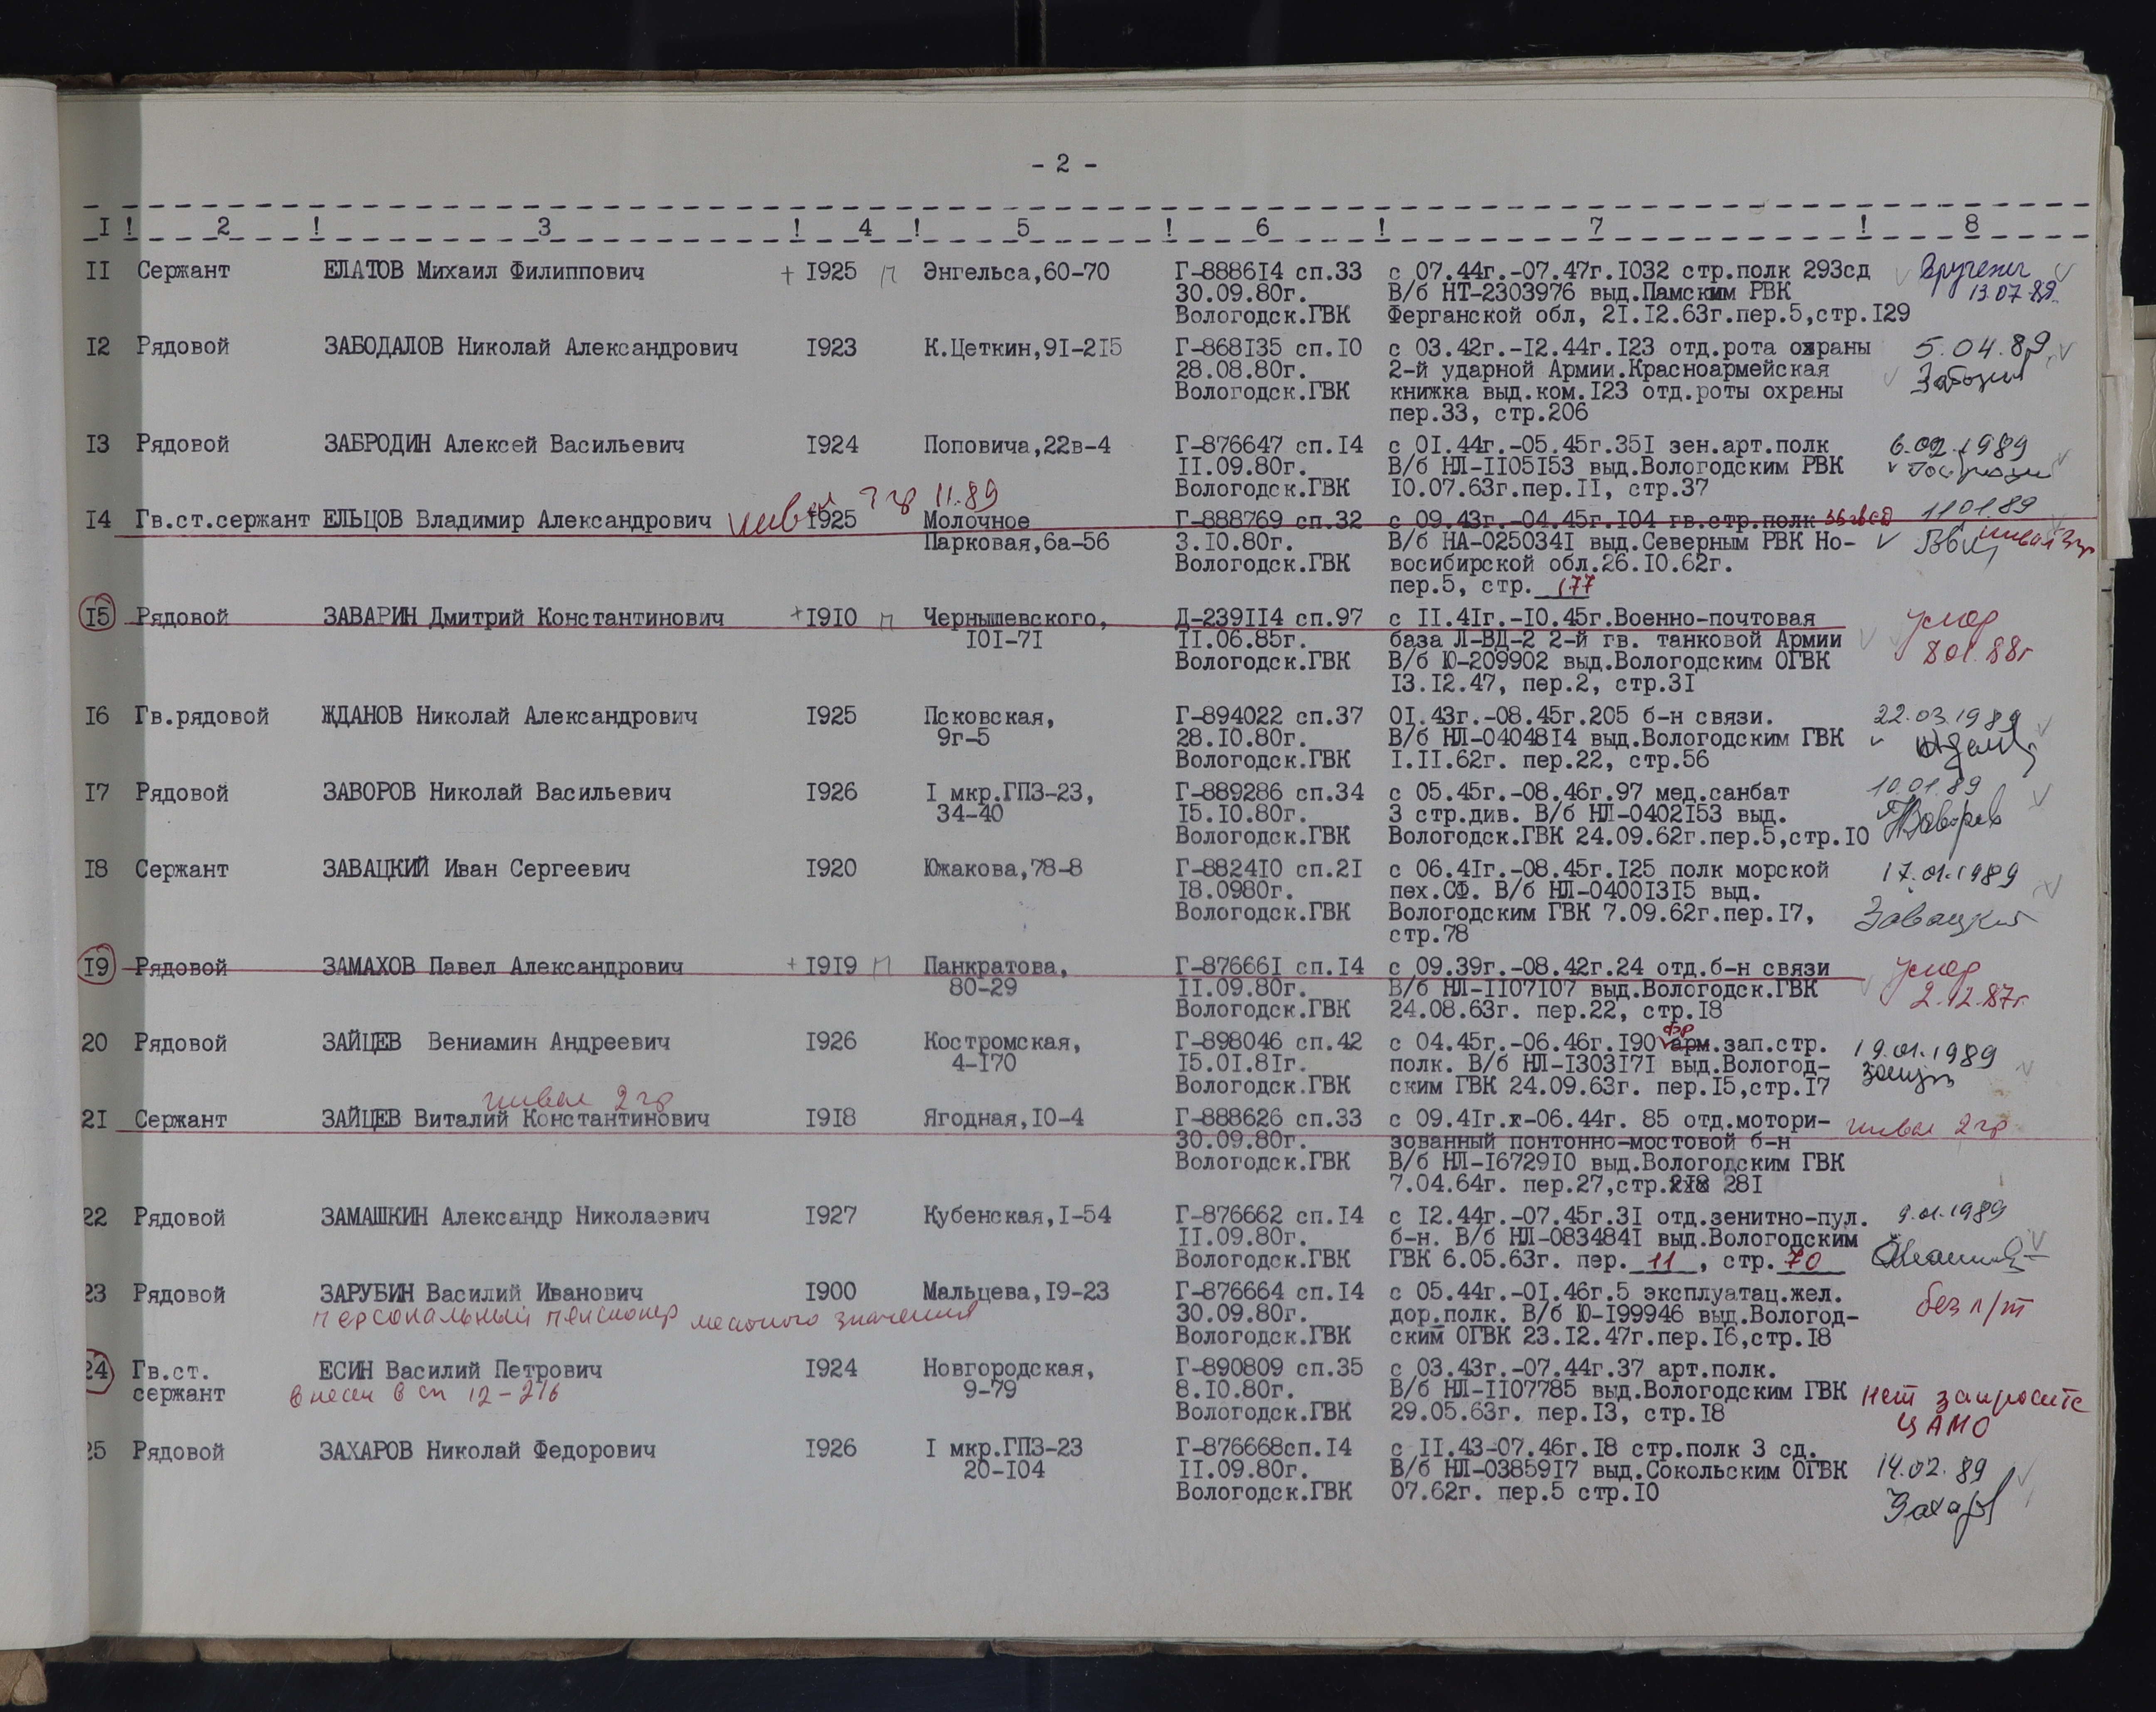 - 2 -
I ! 2 ! 3 ! 4 ! 5 ! 6 ! 7 ! 8
II Сержант ЕЛАТОВ Михаил Филиппович + I925 П Энгельса,60-70 Г-8886I4 сп.33 с 07.44г.-07.47г.I032 стр.полк 293сд Вручены
30.09.80г. В/б НТ-2303976 выд.Памским РВК 13.07.89.
Вологодск.ГВК Ферганской обл, 2I.I2.63г.пер.5,стр.I29
I2 Рядовой ЗАБОДАЛОВ Николай Александрович I923 К.Цеткин,9I-2I5 Г-868I35 сп.I0 с 03.42г.-I2.44г.I23 отд.рота охраны 5.04.89
28.08.80г. 2-й ударной Армии.Красноармейская
Вологодск.ГВК книжка выд.ком.I23 отд.роты охраны
пер.33, стр.206
I3 Рядовой ЗАБРОДИН Алексей Васильевич I924 Поповича,22в-4 Г-876647 сп.I4 с 0I.44г.-05.45г.35I зен.арт.полк 6.02.1989
II.09.80г. В/б НЛ-II05I53 выд.Вологодским РВК
Вологодск.ГВК I0.07.63г.пер.II, стр.37
11.89
I4 Гв.ст.сержант ЕЛЬЦОВ Владимир Александрович I925 Молочное Г-888769 сп.32 с 09.43г.-04.45г.I04 гв.стр.полк 11.01.89
Парковая,6а-56 3.I0.80г. В/б НА-025034I выд.Северным РВК Но-
Вологодск.ГВК восибирской обл.26.I0.62г.
пер.5, стр. 177
I5 Рядовой ЗАВАРИН Дмитрий Константинович + I9I0 П Чернышевского, Д-239II4 сп.97 с II.4Iг.-I0.45г.Военно-почтовая умер
I0I-7I II.06.85г. база Л-ВД-2 2-й гв. танковой Армии 8.01.88г
Вологодск.ГВК В/б Ю-209902 выд.Вологодским ОГВК
I3.I2.47, пер.2, стр.3I
I6 Гв.рядовой ЖДАНОВ Николай Александрович I925 Псковская, Г-894022 сп.37 0I.43г.-08.45г.205 б-н связи. 22.03.1989
9г-5 28.I0.80г. В/б НЛ-04048I4 выд.Вологодским ГВК
Вологодск.ГВК I.II.62г. пер.22, стр.56
I7 Рядовой ЗАВОРОВ Николай Васильевич I926 I мкр.ГПЗ-23, Г-889286 сп.34 с 05.45г.-08.46г.97 мед.санбат 10.01.89
34-40 I5.I0.80г. 3 стр.див. В/б НЛ-0402I53 выд. Заворов
Вологодск.ГВК Вологодск.ГВК 24.09.62г.пер.5,стр.I0
I8 Сержант ЗАВАЦКИЙ Иван Сергеевич I920 Южакова,78-8 Г-8824I0 сп.2I с 06.4Iг.-08.45г.I25 полк морской 17.01.1989
I8.0980г. пех.СФ. В/б НЛ-0400I3I5 выд.
Вологодск.ГВК Вологодским ГВК 7.09.62г.пер.I7, Завацкий
стр.78
I9 Рядовой ЗАМАХОВ Павел Александрович + I9I9 П Панкратова, Г-87666I сп.I4 с 09.39г.-08.42г.24 отд.б-н связи умер
80-29 II.09.80г. В/б НЛ-II07I07 выд.Вологодск.ГВК 2.12.87г.
Вологодск.ГВК 24.08.63г. пер.22, стр.I8
20 Рядовой ЗАЙЦЕВ Вениамин Андреевич I926 Костромская, Г-898046 сп.42 с 04.45г.-06.46г.I90 арм.зап.стр. 19.01.1989
4-I70 I5.0I.8Iг. полк. В/б НЛ-I303I7I выд.Вологод-
Вологодск.ГВК ским ГВК 24.09.63г. пер.I5,стр.I7
инвал 2 гр
2I Сержант ЗАЙЦЕВ Виталий Константинович I9I8 Ягодная,I0-4 Г-888626 сп.33 с 09.4Iг.х-06.44г. 85 отд.мотори- инвал 2 гр
30.09.80г. зованный понтонно-мостовой б-н
Вологодск.ГВК В/б НЛ-I6729I0 выд.Вологодским ГВК
7.04.64г. пер.27,стр. 28I
22 Рядовой ЗАМАШКИН Александр Николаевич I927 Кубенская,I-54 Г-876662 сп.I4 с I2.44г.-07.45г.3I отд.зенитно-пул. 9.01.1989
II.09.80г. б-н. В/б НЛ-083484I выд.Вологодским
Вологодск.ГВК ГВК 6.05.63г. пер. 11 , стр. 70
23 Рядовой ЗАРУБИН Василий Иванович I900 Мальцева,I9-23 Г-876664 сп.I4 с 05.44г.-0I.46г.5 эксплуатац.жел. без п/т
персональный пенсионер местного значения 30.09.80г. дор.полк. В/б Ю-I99946 выд.Вологод-
Вологодск.ГВК ским ОГВК 23.I2.47г.пер.I6,стр.I8
24 Гв.ст. ЕСИН Василий Петрович I924 Новгородская, Г-890809 сп.35 с 03.43г.-07.44г.37 арт.полк.
сержант внесен в сп 12-216 9-79 8.I0.80г. В/б НЛ-II07785 выд.Вологодским ГВК нет запросите
Вологодск.ГВК 29.05.63г. пер.I3, стр.I8 ЦАМО
25 Рядовой ЗАХАРОВ Николай Федорович I926 I мкр.ГПЗ-23 Г-876668сп.I4 с II.43-07.46г.I8 стр.полк 3 сд.
20-I04 II.09.80г. В/б НЛ-03859I7 выд.Сокольским ОГВК 14.02.89
Вологодск.ГВК 07.62г. пер.5 стр.I0 Захаров